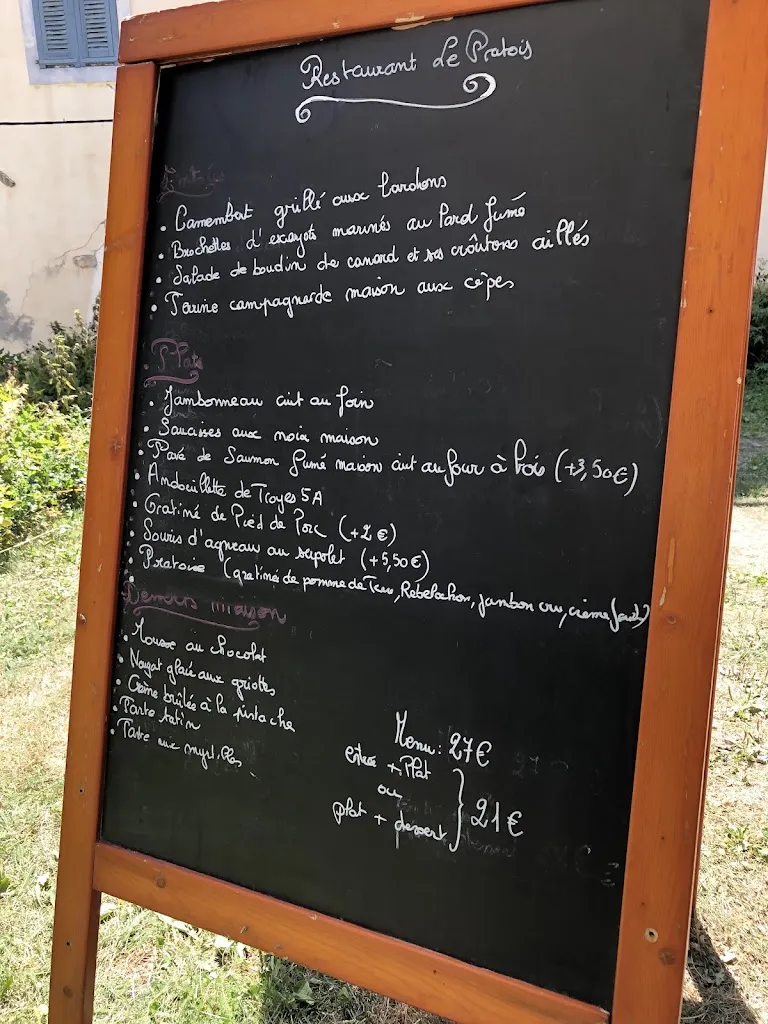 Restaurant Le Pratois
Entrées
• Camembert grillé aux lardons
• Brochettes d'escargots marinés au lard fumé
• Salade de boudin de canard et ses croûtons aillés
• Terrine campagnarde maison aux cèpes
Plats
• Jambonneau cuit au foin
• Saucisses aux noix maison
• Pavé de Saumon fumé maison cuit au four à bois (+3,50€)
• Andouillette de Troyes 5A
• Gratiné de Pied de Porc (+2€)
• Souris d'agneau au serpolet (+5,50€)
• Pratoise (gratiné de pomme de Terre, Reblochon, jambon cru, crème
Desserts maison
• Mousse au chocolat
• Nougat glacé aux griottes
• Crème brûlée à la pistache
• Tarte tatin
• Tarte aux myrtilles
Menu: 27€
entrée + Plat
ou
plat + dessert } 21€